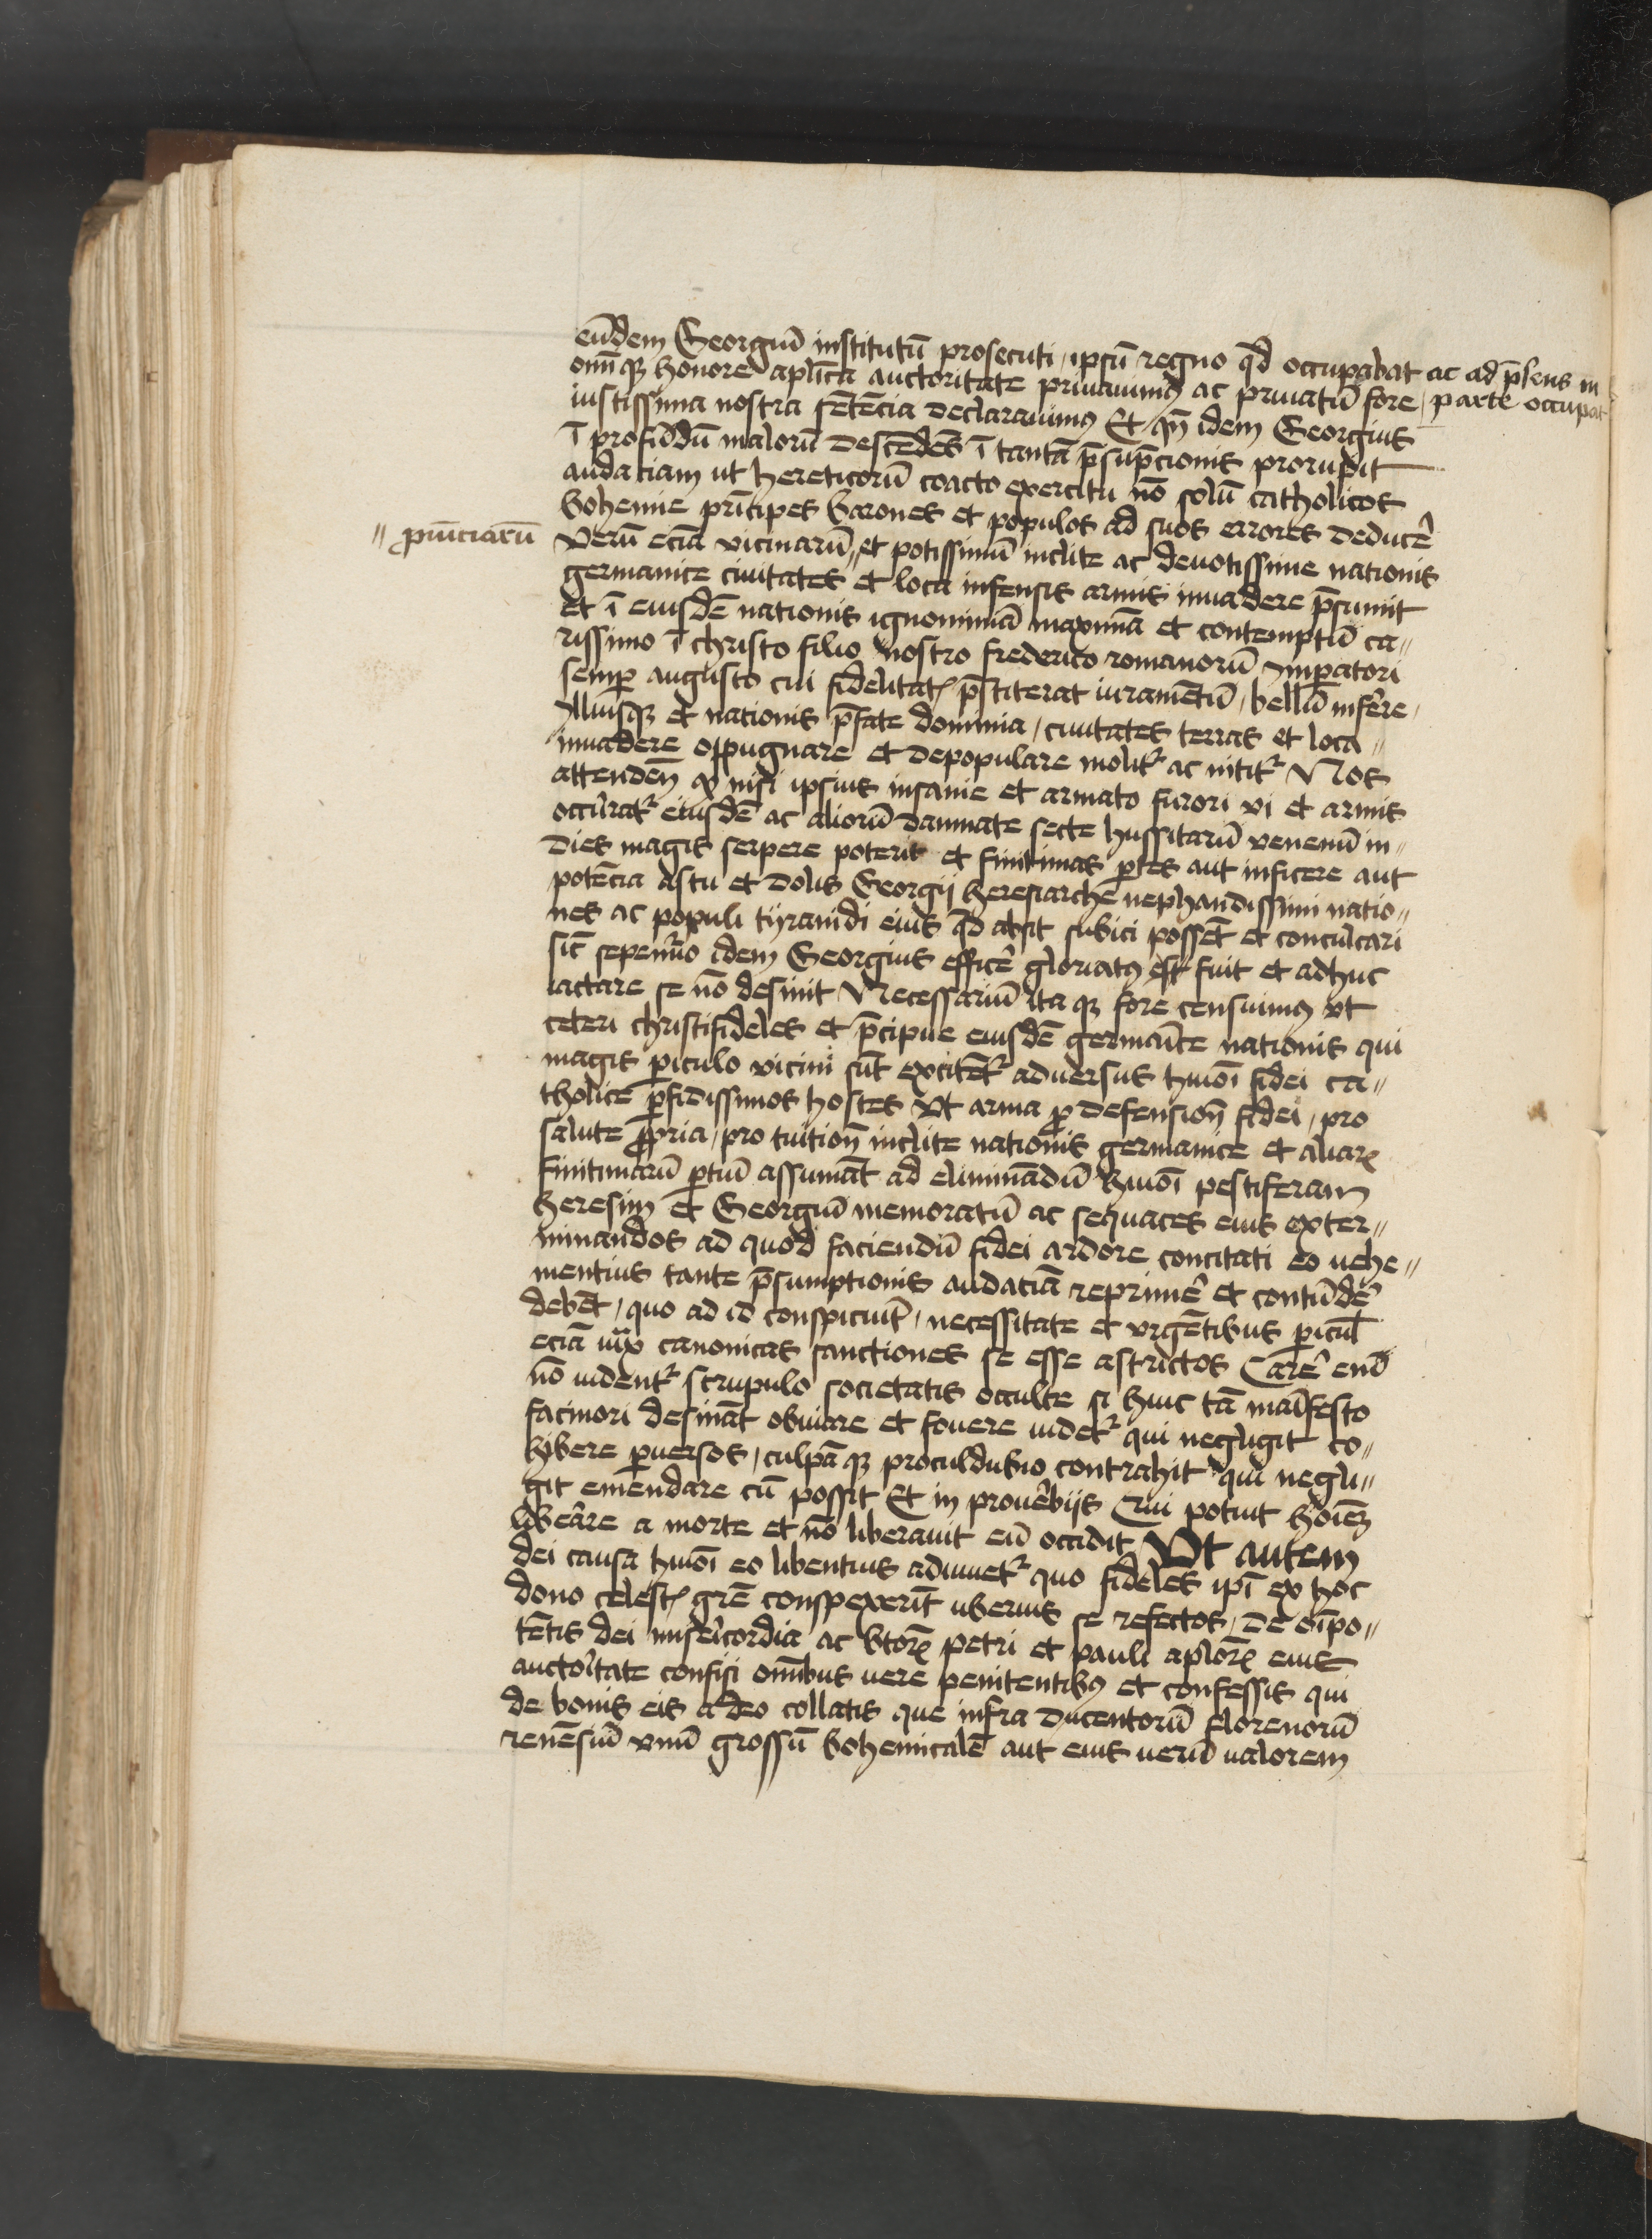 eūdem Georgiū institutū prosecuti, ipsū regno qd̄ occupabat ac ad p̄sens in
om̄iq̢ honore aplica auctoritate priuauimꝰ ac priuatū fore, parte occupat
iustissima nostra sētēcia declarauimꝰ Et qn̄ idem Georgius
ī profūdū malorū descēdēs ī tantā p̄sūpcionis prorupit
audaciam ut hereticorū coacto exercitu nō solū catholicos
bohemie prīcipes barones et populos ad suos errores deducē
" ꝓuīciarū
verū eciā vicinarū " et potissimū inclite ac deuotissime nationis
germanice ciuitates et loca infensis armis inuadere p̄sumit
et ī eiusdē nationis ignominiā maximā et contemptū ca"
rissimo ī christo filio nostro frederico romanorū Imꝑatori
semꝑ augusto cui fidelitatꝭ p̄stiterat iuramētū, bellū inferre,
Illiusq̢ et nationis p̄fate dominia, ciuitates terras et loca"
inuadere oppugnare et depopulare molitᷣ ac nititᷣ Nos
attenden̄ ꝙ nisi ipsius insanie et armato furori vi et armis
occūratᷣ eiusdē ac aliorū damnate secte hussitarū venenū in"
dies magis serpere poterit et finitimas ꝑtes aut inficere aut
potēcia astu et dolis Georgij heresiarche nephandissimi natio"
nes ac populi tyrānidi eius qd̄ absit subici possēt et conculcari
sic̄ sepenuo idem Georgius efficē gloriatꝰ est fuit et adhuc
iactare se nō desinit Necessariū itaq̢ fore censuimꝰ vt
ceteri christifideles et p̄cipue eiusdē germaīce nationis qui
magis ꝑiculo vicini sūt excitētᷣ aduersus hmōi fidei ca"
tholice ꝑfidissimos hostes Vt arma ꝓ defension̄ fidei, pro
salute ꝓpria, pro tuition̄ inclite nationis germanice et aliarꝝ
finitimarū ꝑtiū assumāt ad eliminādū hmōi pestiferam
heresim et Georgiū memoratū ac sequaces eius exter"
minandos ad quod faciendū fidei ardore concitati eo uehe"
mentius tante p̄sumptionis audaciā reprimē et contūdē
debēt, quo ad id conspiciūt, necessitate et vrgētibus ꝑicul̄
eciā iuxᵃ canonicas sanctiones se esse astrictos Carē enī
nō uidentᷣ scrupulo societatis occulte si huic tā maīfesto
facinori desināt obuiare et fouere uidetᷣ qui negligit co"
hibere ꝑuersos, culpāq̢ proculdubio contrahit qui negli"
git emendare cū possit Et in prouerbijs Qui potuit hoīeꝫ
liberare a morte et nō liberauit eū occidit Vt autem
dei causa hmōi eo libentius adiuuetᷣ quo fideles ipi ex hoc
dono celestꝭ grē conspexerīt uberius se refectos, de oīpo"
tētis dei misericordia ac btorꝝ petri et pauli aplorꝝ eius
auctoritate confisi omībus uere penitentibꝰ et confessis qui
de bonis eis a deo collatis que infra ducentorū florenorū
renēsiū vnū grossū bohemicalē aut eius uerū ualorem